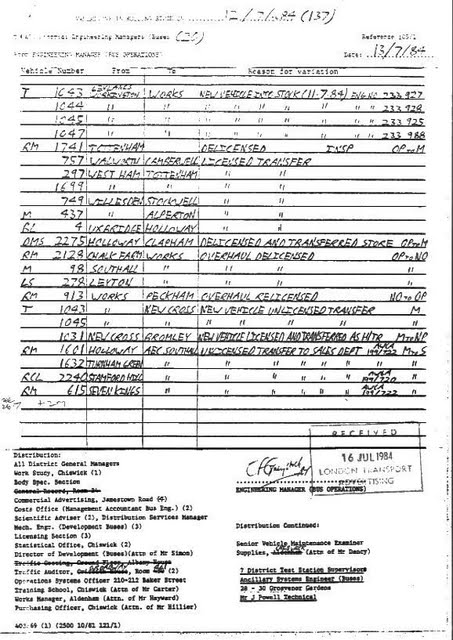 VARIATION IN ROLLING STOCK 12/7/84 (137)
To: All District Engineering Managers (Buses) (20) Reference 105/1
From ENGINEERING MANAGER (BUS OPERATIONS) Date: 13/7/84
Vehicle Number From To Reason for variation
T 1043 LEYLANDS WORKINGTON WORKS NEW VEHICLE INTO STOCK (11-7-84) ENG NO 233 927
1044 " " " " " " " 233 928
1045 " " " " " " " 233 925
1047 " " " " " " " 233 988
RM 1741 TOTTENHAM DELICENSED INSP OP TO M
757 WALWORTH CAMBERWELL LICENSED TRANSFER
297 WEST HAM TOTTENHAM " "
1699 " " " "
749 WILLESDEN STOCKWELL " "
M 437 " ALPERTON " "
BL 4 UXBRIDGE HOLLOWAY " "
DMS 2275 HOLLOWAY CLAPHAM DELICENSED AND TRANSFERRED STORE OP TO M
RM 2128 CHALK FARM WORKS OVERHAUL DELICENSED OP TO NO
M 98 SOUTHALL " " " "
LS 278 LEYTON " " " "
RM 913 WORKS PECKHAM OVERHAUL RELICENSED NO TO OP
T 1043 " NEW CROSS NEW VEHICLE UNLICENSED TRANSFER M
1045 " " " " " " "
1031 NEW CROSS BROMLEY NEW VEHICLE LICENSED AND TRANSFERRED AS H/TR M TO NP
RM 1601 HOLLOWAY AEC SOUTHALL UNLICENSED TRANSFER TO SALES DEPT M TO S
1632 TURNHAM GREEN " " " " " " "
RCL 2240 STAMFORD HILL " " " " " "
RM 615 SEVEN KINGS " " " " " "
RECEIVED
16 JUL 1984
LONDON TRANSPORT
ADVERTISING
ENGINEERING MANAGER (BUS OPERATIONS)
Distribution:
All District General Managers
Work Study, Chiswick (1)
Body Spec. Section
General Record, Room
Commercial Advertising, Jamestown Road (4)
Costs Office (Management Accountant Bus Eng.) (2)
Scientific Adviser (2), Distribution Services Manager
Mech. Engr. (Development Buses) (3)
Licensing Section (3)
Statistical Office, Chiswick (2)
Director of Development (Buses)(Attn of Mr Simon)
Traffic Costing, Ground Floor, Albany House
Traffic Auditor, Room (2)
Operations Systems Officer 210-212 Baker Street
Training School, Chiswick (Attn of Mr Carter)
Works Manager, Aldenham (Attn of Mr Hayward)
Purchasing Officer, Chiswick (Attn of Mr Hillier)
Distribution Continued:
Senior Vehicle Maintenance Examiner
Supplies, (Attn of Mr Dancy)
7 District Test Station Supervisors
Ancillary Systems Engineer (Buses)
28 - 30 Grosvenor Gardens
Mr J Powell Technical
403:69 (1) (2500 10/81 121/1)